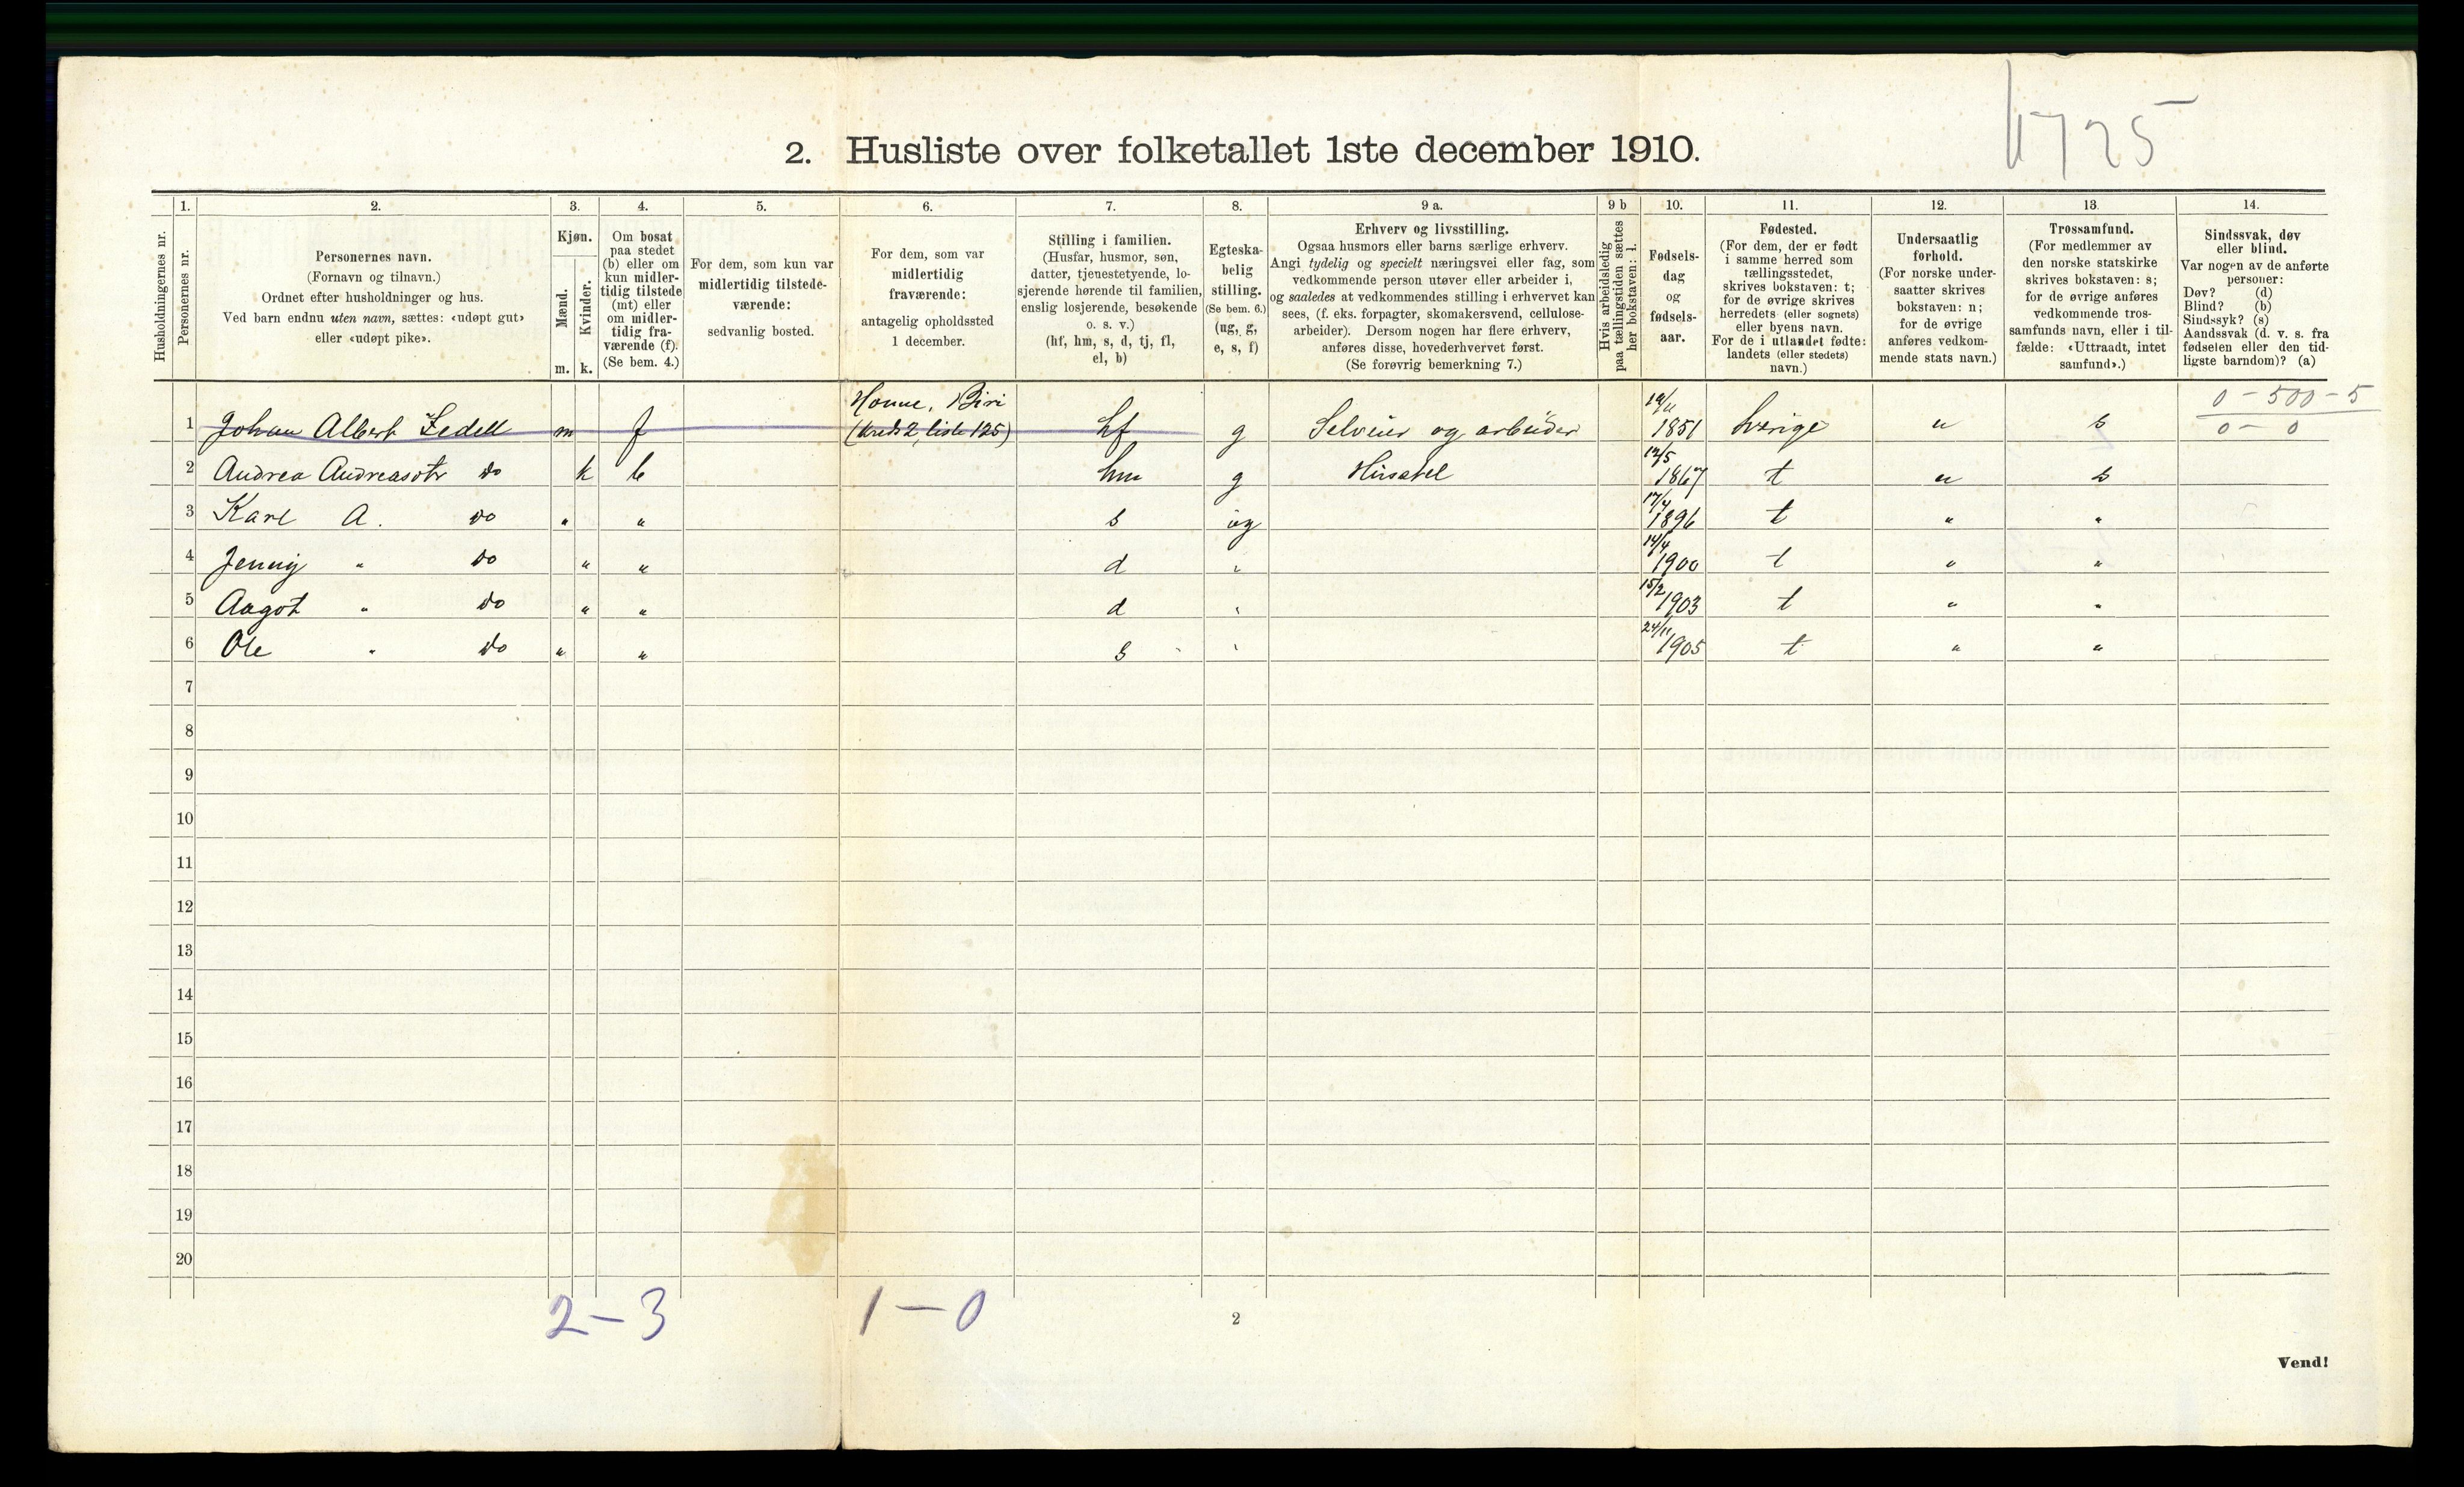 2. Husliste over folketallet 1ste december 1910.
Husholdningernes nr.
1.
Personernes nr.
2.
Personernes navn.
(Fornavn og tilnavn.)
Ordnet efter husholdninger og hus.
Ved barn endnu uten navn, sættes: «udøpt gut»
eller «udøpt pike».
3.
Kjøn.
Mænd.
Kvinder.
m. k.
4.
Om bosat
paa stedet
(b) eller om
kun midler-
tidig tilstede
(mt) eller
om midler-
tidig fra-
værende (f).
(Se bem. 4.)
5.
For dem, som kun var
midlertidig tilstede-
værende:
sedvanlig bosted.
6.
For dem, som var
midlertidig
fraværende:
antagelig opholdssted
1 december.
7.
Stilling i familien.
(Husfar, husmor, søn,
datter, tjenestetyende, lo-
sjerende hørende til familien,
enslig losjerende, besøkende
o. s. v.)
(hf, hm, s, d, tj, fl,
el, b)
8.
Egteska-
belig
stilling.
(Se bem. 6.)
(ug, g,
e, s, f)
9 a.
Erhverv og livsstilling.
Ogsaa husmors eller barns særlige erhverv.
Angi tydelig og specielt næringsvei eller fag, som
vedkommende person utøver eller arbeider i,
og saaledes at vedkommendes stilling i erhvervet kan
sees, (f. eks. forpagter, skomakersvend, cellulose-
arbeider). Dersom nogen har flere erhverv,
anføres disse, hovederhvervet først.
(Se forøvrig bemerkning 7.)
9 b
Hvis arbeidsledig
paa tællingstiden sættes
her bokstaven: l.
10.
Fødsels-
dag
og
fødsels-
aar.
11.
Fødested.
(For dem, der er født
i samme herred som
tællingsstedet,
skrives bokstaven: t;
for de øvrige skrives
herredets (eller sognets)
eller byens navn.
For de i utlandet fødte:
landets (eller stedets)
navn.)
12.
Undersaatlig
forhold.
(For norske under-
saatter skrives
bokstaven: n;
for de øvrige
anføres vedkom-
mende stats navn.)
13.
Trossamfund.
(For medlemmer av
den norske statskirke
skrives bokstaven: s;
for de øvrige anføres
vedkommende tros-
samfunds navn, eller i til-
fælde: «Uttraadt, intet
samfund».)
14.
Sindssvak, døv
eller blind.
Var nogen av de anførte
personer:
Døv? (d)
Blind? (b)
Sindssyk? (s)
Aandssvak (d. v. s. fra
fødselen eller den tid-
ligste barndom)? (a)
0 - 500 - 5
0 - 0
Honne, Biri
1 Johan Albert Zedell m f (Kreds 2, liste 125) hf g Selveier og arbeider 1851 Sverige n s
2 Andrea Andreasdtr do k b hm g Husstel 12/5 1867 t n s
3 Karl A. do " " s ug 17/4 1896 t " "
4 Jenny " do " " d " 14/4 1900 t " "
5 Aagot " do " " d " 15/2 1903 t " "
6 Ole " do " " s " 24/11 1905 t " "
7
8
9
10
11
12
13
14
15
16
17
18
19
20
2 - 3 1 - 0
2
Vend!